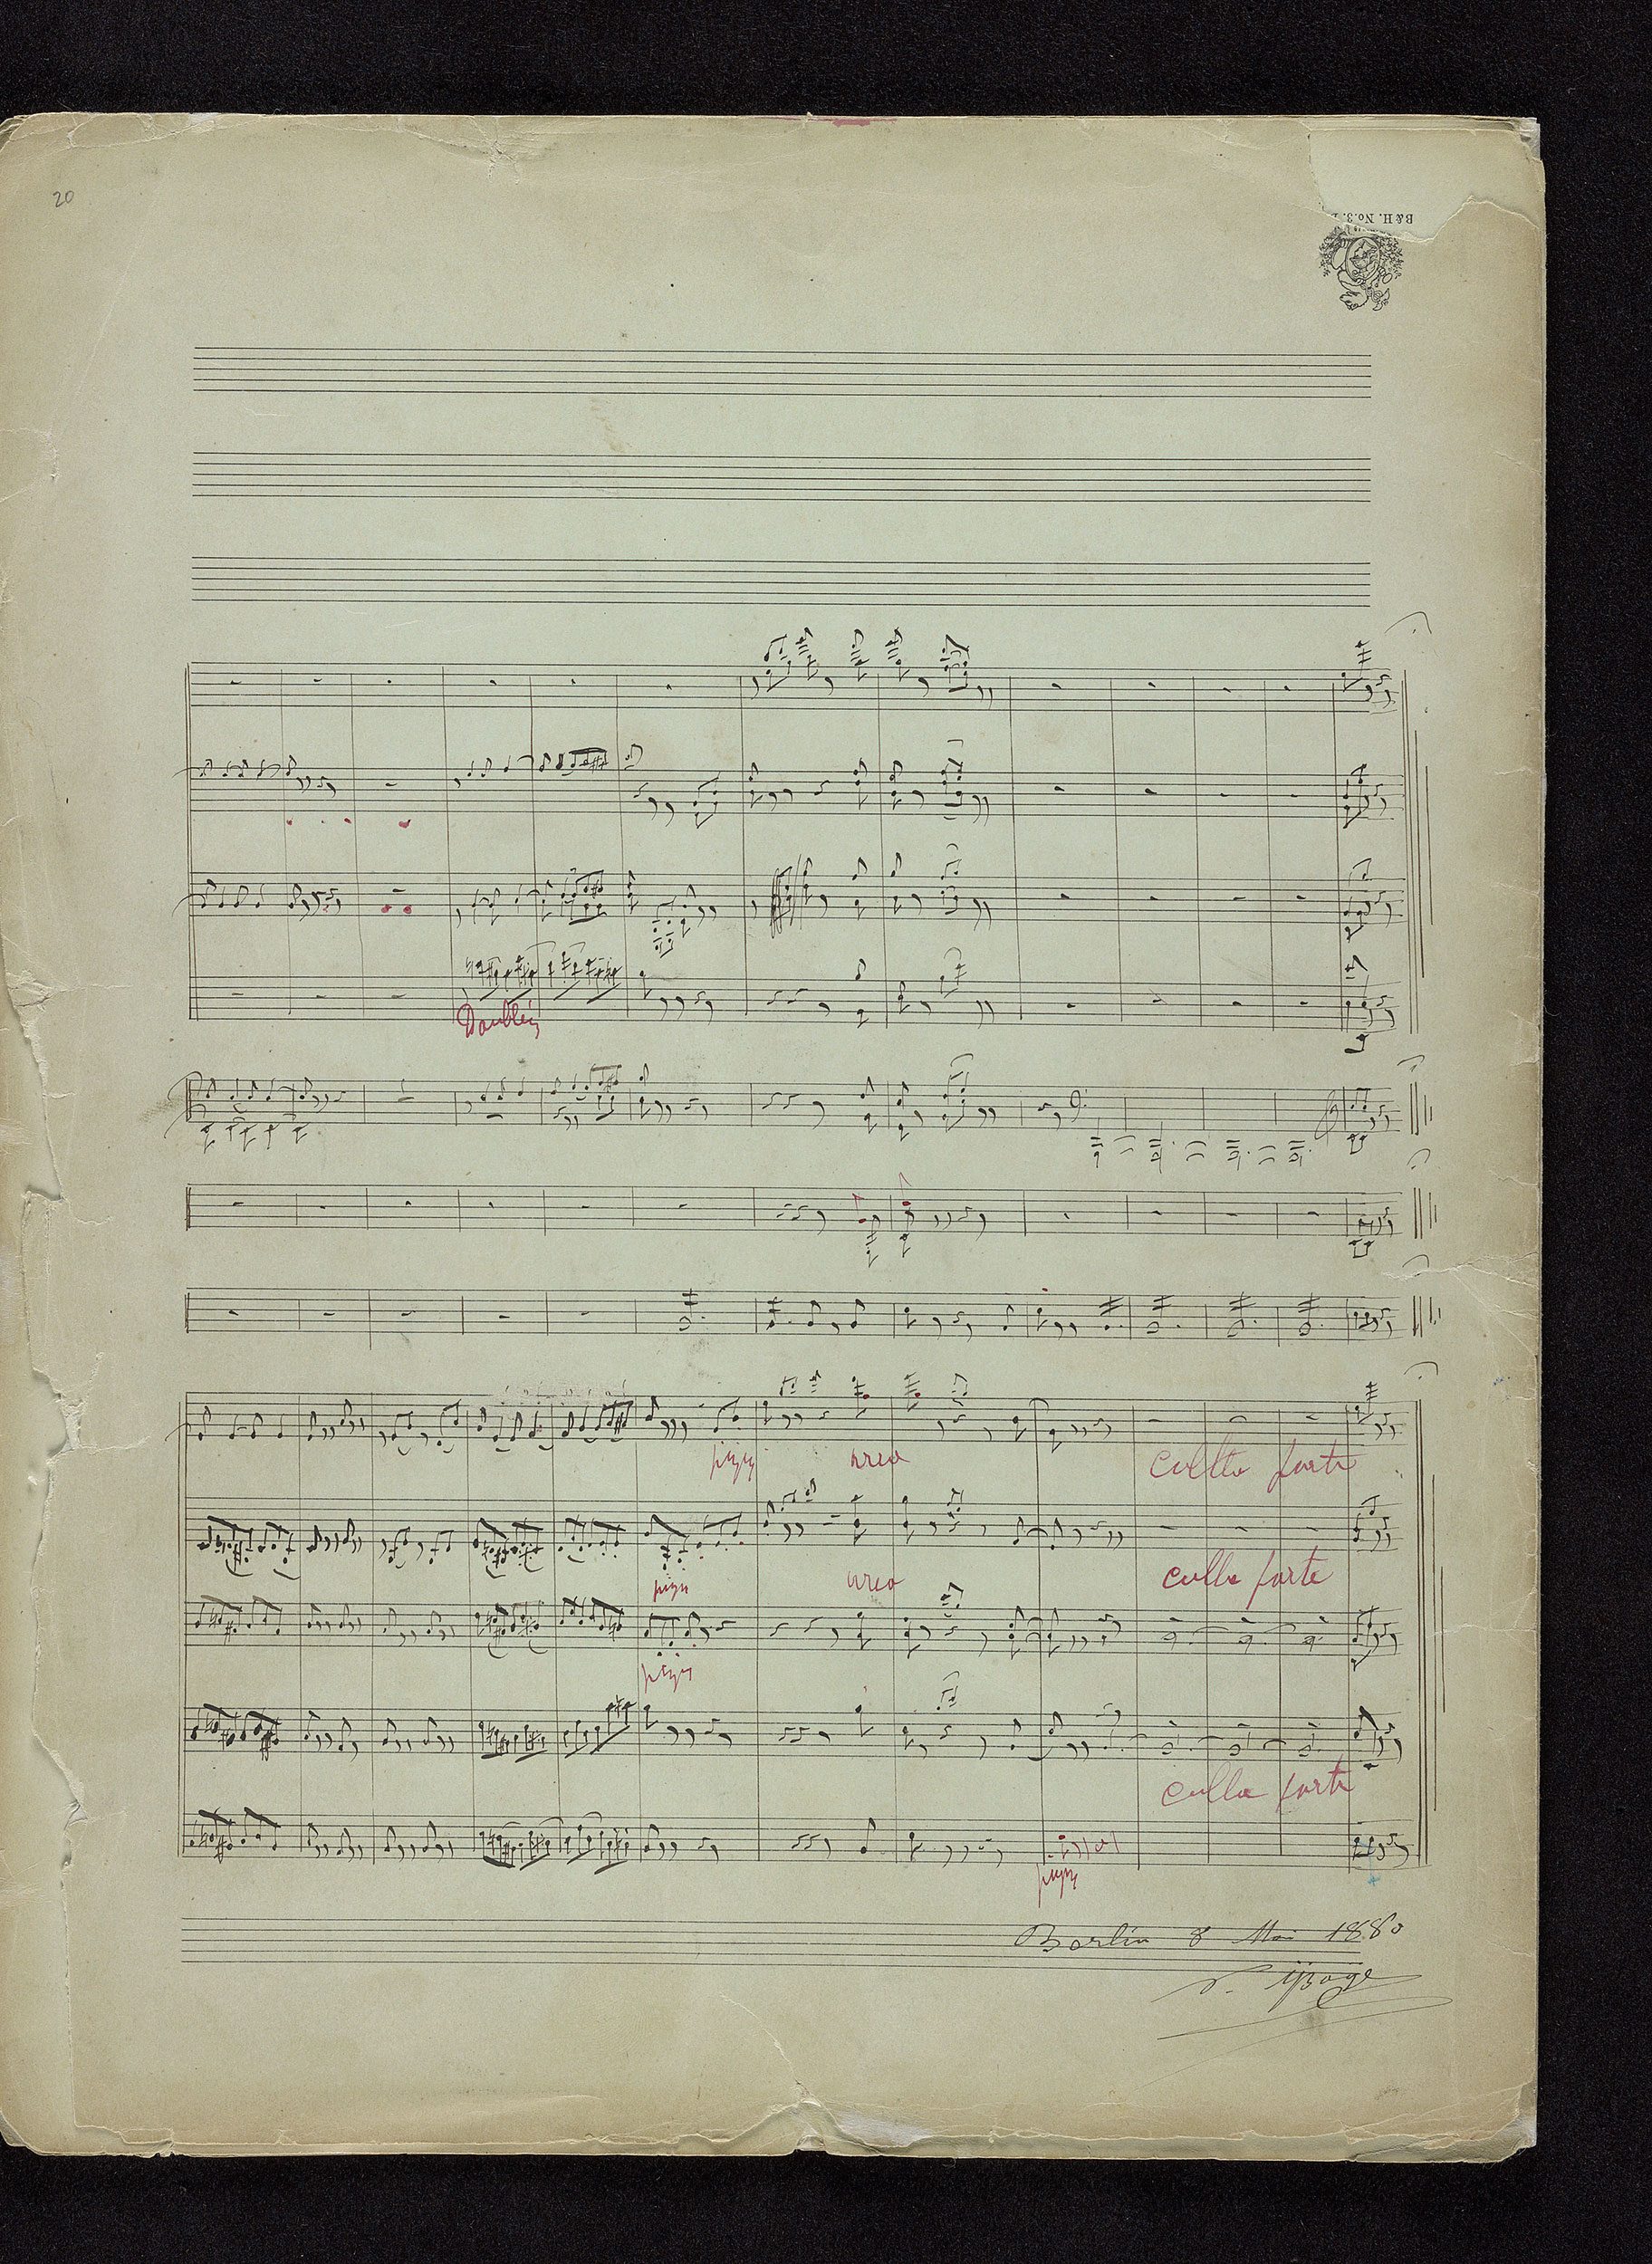 20
B&H. No. 3.
Doublez
pizz
arco
colla parte
pizz
arco
colla parte
pizz
colla parte
pizz
Berlin 8 Mai 1880